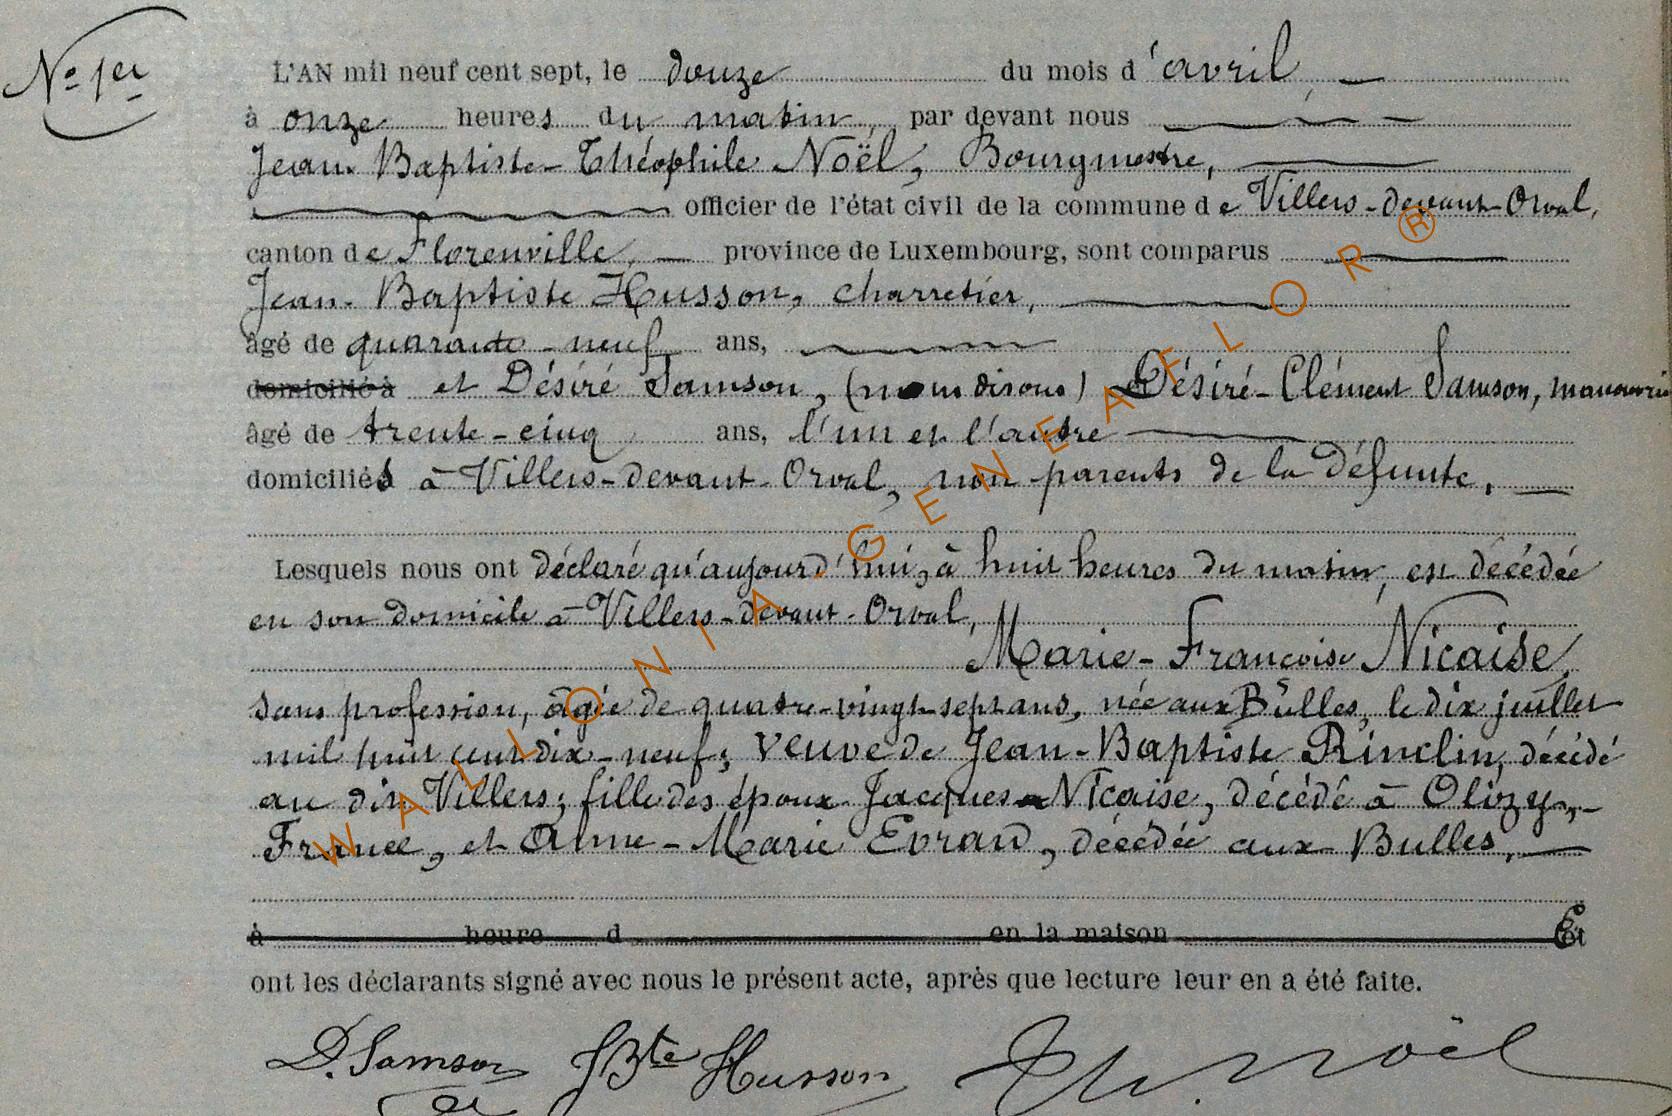 No 1er
L'AN mil neuf cent sept, le douze du mois d'avril,
à onze heures du matin, par devant nous
Jean-Baptiste-Théophile Noël, Bourgmestre,
officier de l'état civil de la commune de Villers-devant-Orval,
canton de Florenville, province de Luxembourg, sont comparus
Jean-Baptiste Husson, charretier,
âgé de quarante-neuf ans,
domicilié à et Désiré Samson, (nous disons) Désiré-Clément Samson, manouvrie
âgé de trente-cinq ans, l'un et l'autre
domiciliés à Villers-devant-Orval, non parents de la défunte.
Lesquels nous ont déclaré qu'aujourd'hui, à huit heures du matin, est décédée
en son domicile à Villers-devant-Orval,
Marie-Françoise Nicaise,
sans profession, âgée de quatre-vingt-sept ans, née aux Bulles, le dix juillet
mil huit cent dix-neuf; veuve de Jean-Baptiste Rinclin, décédé
au dit Villers; fille des époux Jacques Nicaise, décédé à Olizy,
France, et Anne-Marie Evrard, décédée aux Bulles.
à heure d en la maison Et
ont les déclarants signé avec nous le présent acte, après que lecture leur en a été faite.
D. Samson JBte Husson Th. Noël
WALLONIA GENEAFLOR®